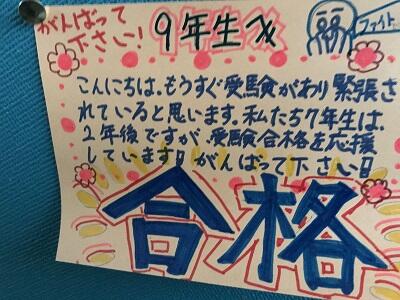 がんばって
下さい!
9年生へ
ファイト
こんにちは。もうすぐ受験があり緊張さ
れていると思います。私たち7年生は、
2年後ですが、受験合格を応援
しています!!がんばって下さい!!
合格